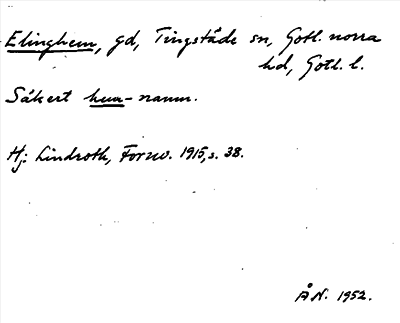 Elinghem, gd, Tingstäde sn, Gotl. norra
hd, Gotl. l.
Säkert hem-namn.
Hj. Lindroth, Fornv. 1915, s. 38.
ÅN. 1952.